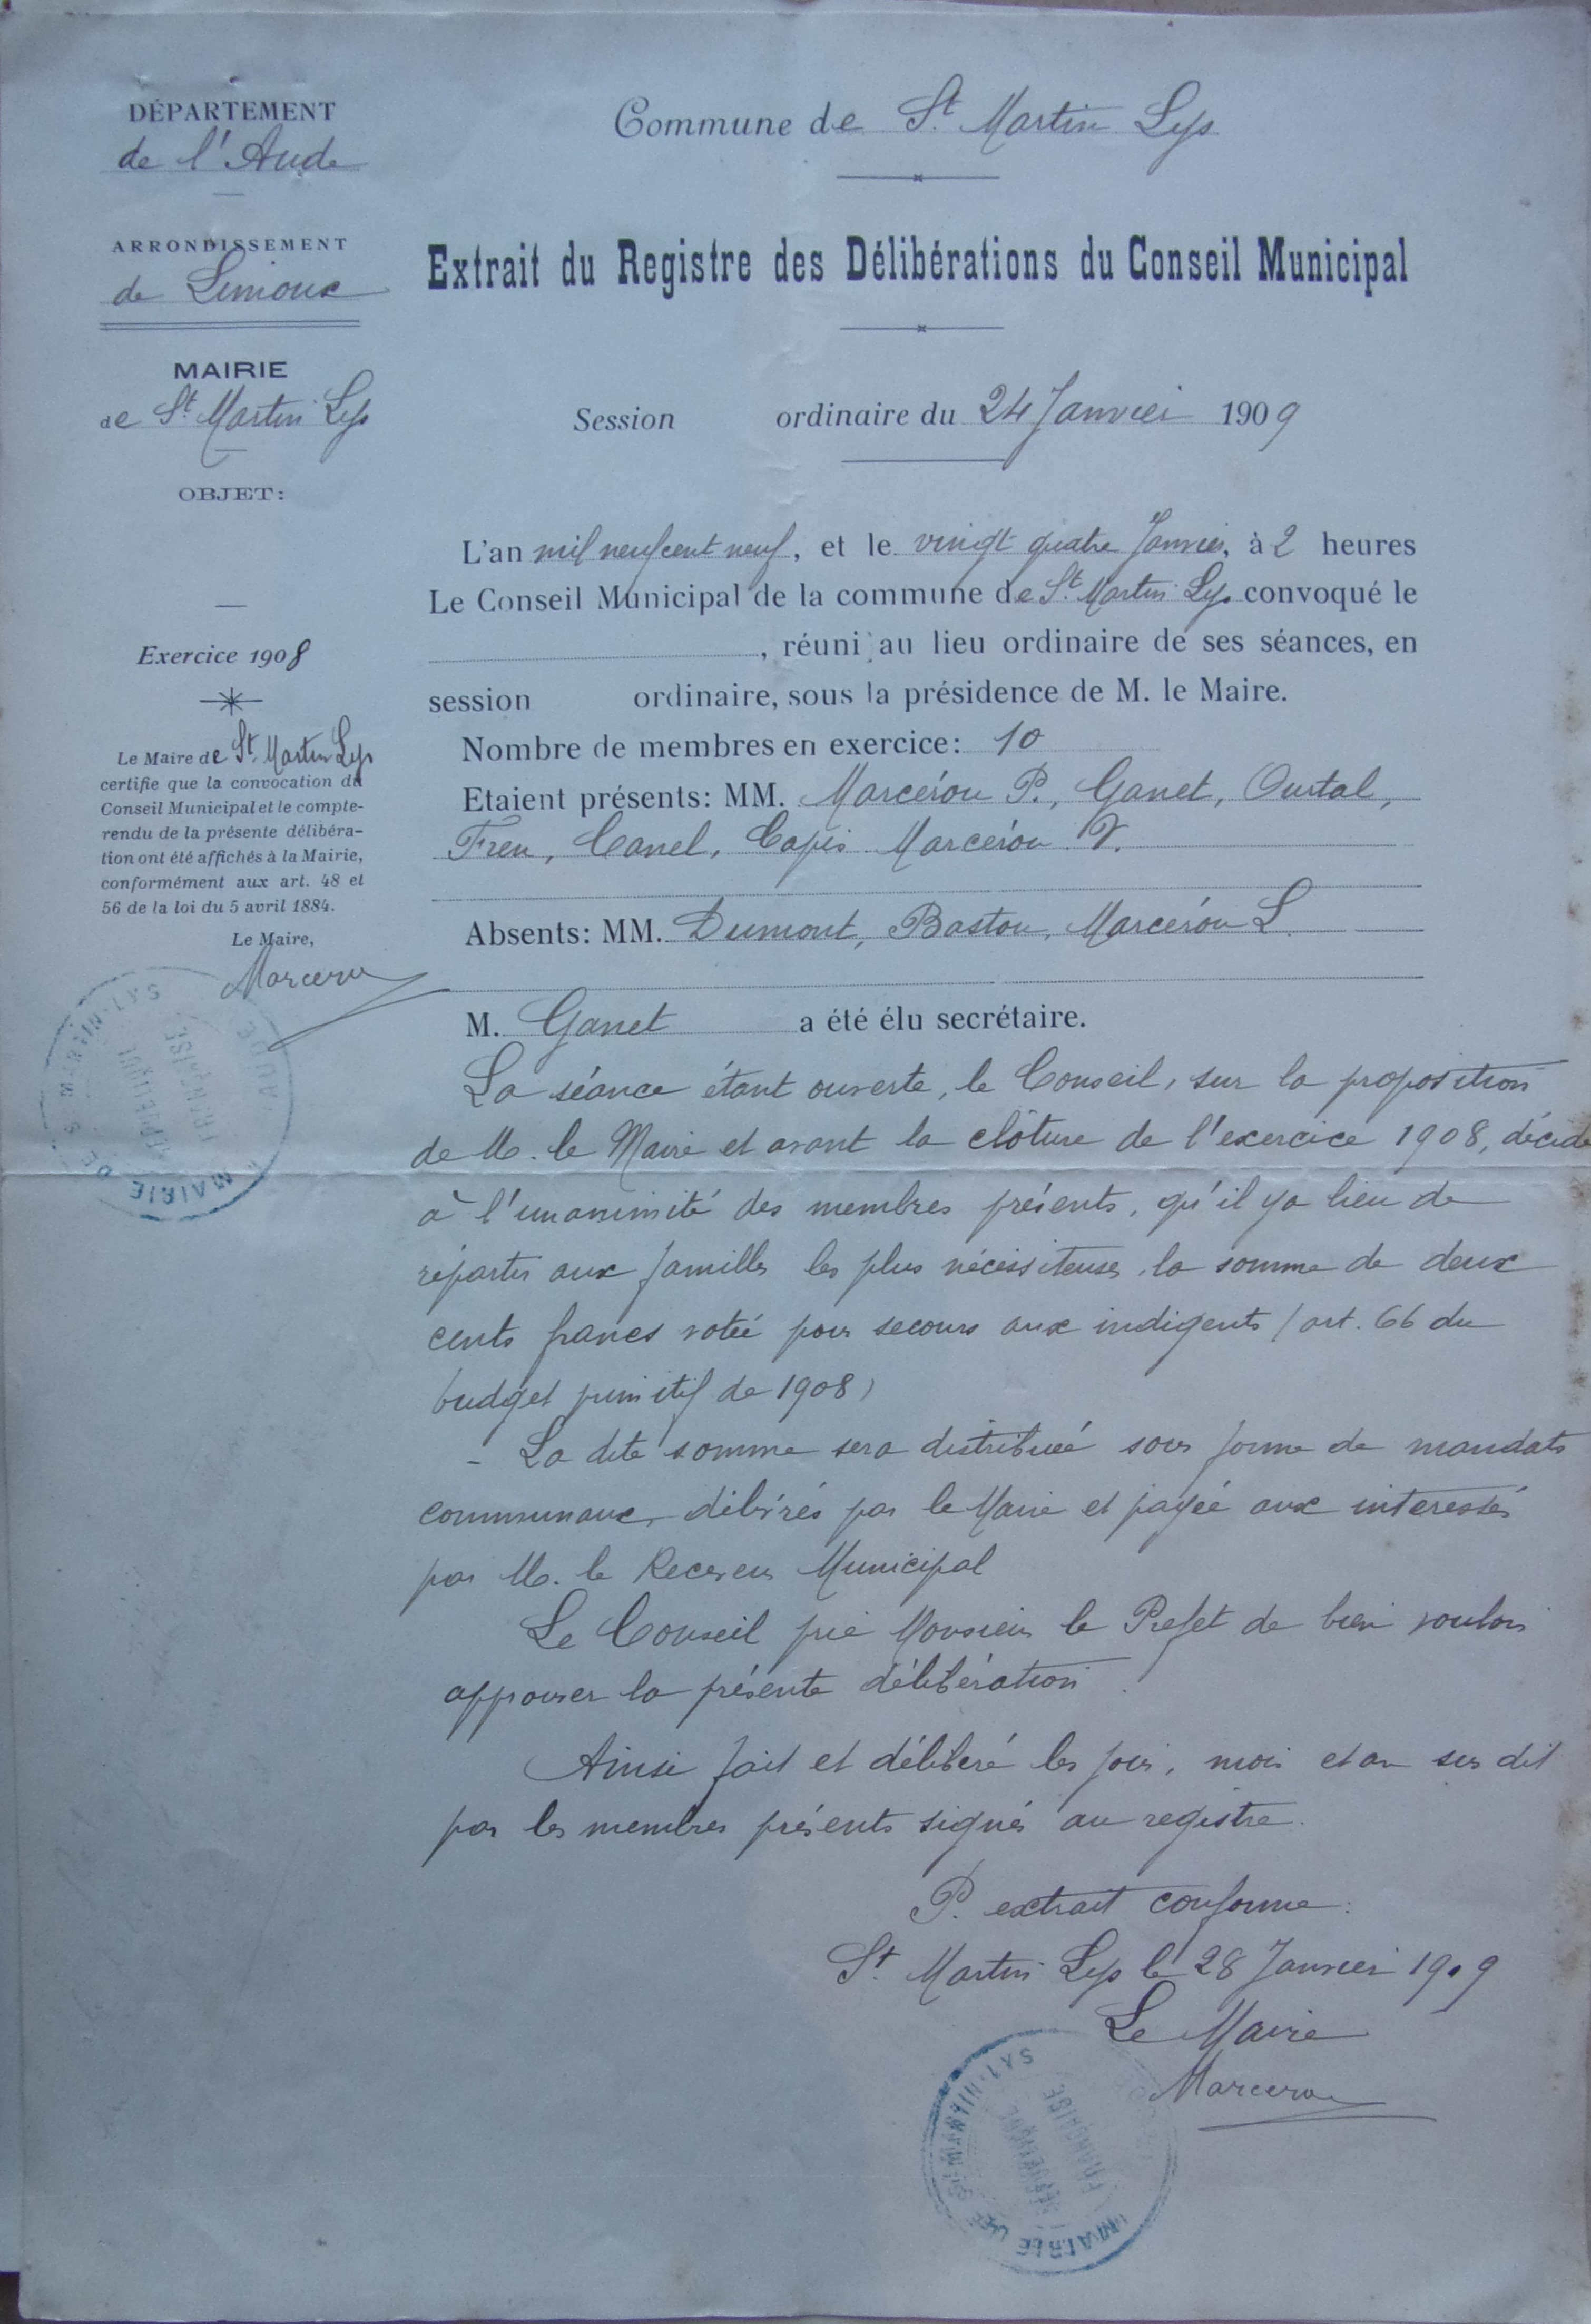 DÉPARTEMENT
de l'Aude
ARRONDISSEMENT
de Limoux
MAIRIE
de St. Martin Lys
OBJET:
Exercice 1908
Le Maire de St. Martin Lys
certifie que la convocation du
Conseil Municipal et le compte-
rendu de la présente délibéra-
tion ont été affichés à la Mairie,
conformément aux art. 48 et
56 de la loi du 5 avril 1884.
Le Maire,
Marcerou
MAIRIE DE St MARTIN-LYS
AUDE
RÉPUBLIQUE
FRANÇAISE
Commune de St. Martin Lys
Extrait du Registre des Délibérations du Conseil Municipal
Session ordinaire du 24 Janvier 1909
L'an mil neuf cent neuf, et le vingt quatre Janvier, à 2 heures
Le Conseil Municipal de la commune de St. Martin Lys convoqué le
, réuni au lieu ordinaire de ses séances, en
session ordinaire, sous la présidence de M. le Maire.
Nombre de membres en exercice: 10
Etaient présents: MM. Marcérou P., Ganet, Ourtal,
Freu, Canel, Capis Marcérou V.
Absents: MM. Dumont, Baston, Marcérou L.
M. Ganet a été élu secrétaire.
La séance étant ouverte, le Conseil, sur la proposition
de M. le Maire et avant la clôture de l'exercice 1908, décide
à l'unanimité des membres présents, qu'il y a lieu de
répartir aux familles les plus nécessiteuses, la somme de deux
cents francs votée pour secours aux indigents (art. 66 du
budget primitif de 1908)
- La dite somme sera distribuée sous forme de mandats
communaux, délivrés par le Maire et payée aux interessés
par M. le Receveur Municipal
Le Conseil prie Monsieur le Prefet de bien vouloir
approuver la présente délibération.
Ainsi fait et délibéré les jour, mois et an sus dit
par les membres présents signés au registre.
P. extrait conforme:
St. Martin Lys le 28 Janvier 1909
Le Maire
Marcerou
MAIRIE DE St MARTIN-LYS
RÉPUBLIQUE
FRANÇAISE